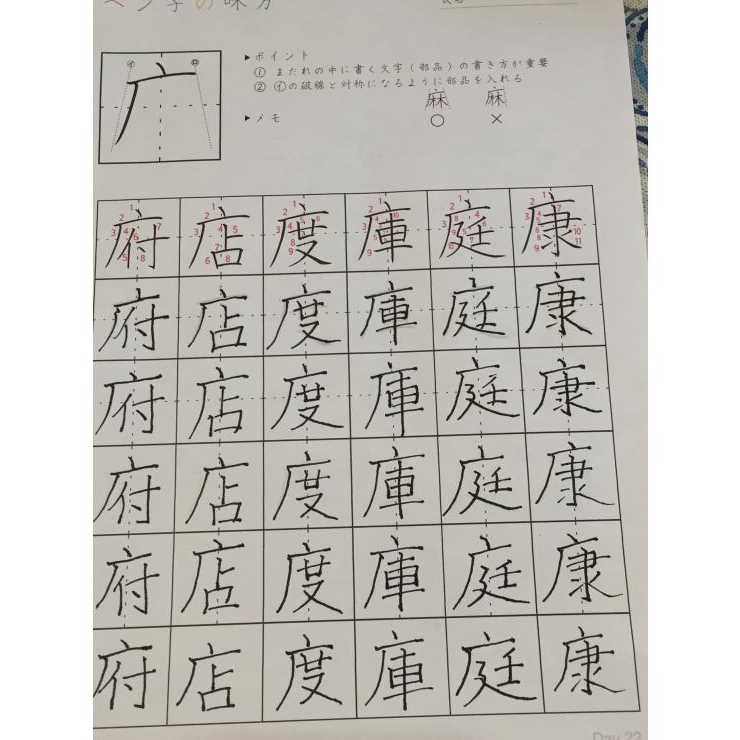 ペン字の味方
氏名
㋑ ㋺
▶ポイント
① まだれの中に書く文字（部品）の書き方が重要
② ㋑の破線と対称になるように部品を入れる
麻 麻
▶メモ ○ ×
府 店 度 庫 庭 康
府 店 度 庫 庭 康
府 店 度 庫 庭 康
府 店 度 庫 庭 康
府 店 度 庫 庭 康
府 店 度 庫 庭 康
Day 22